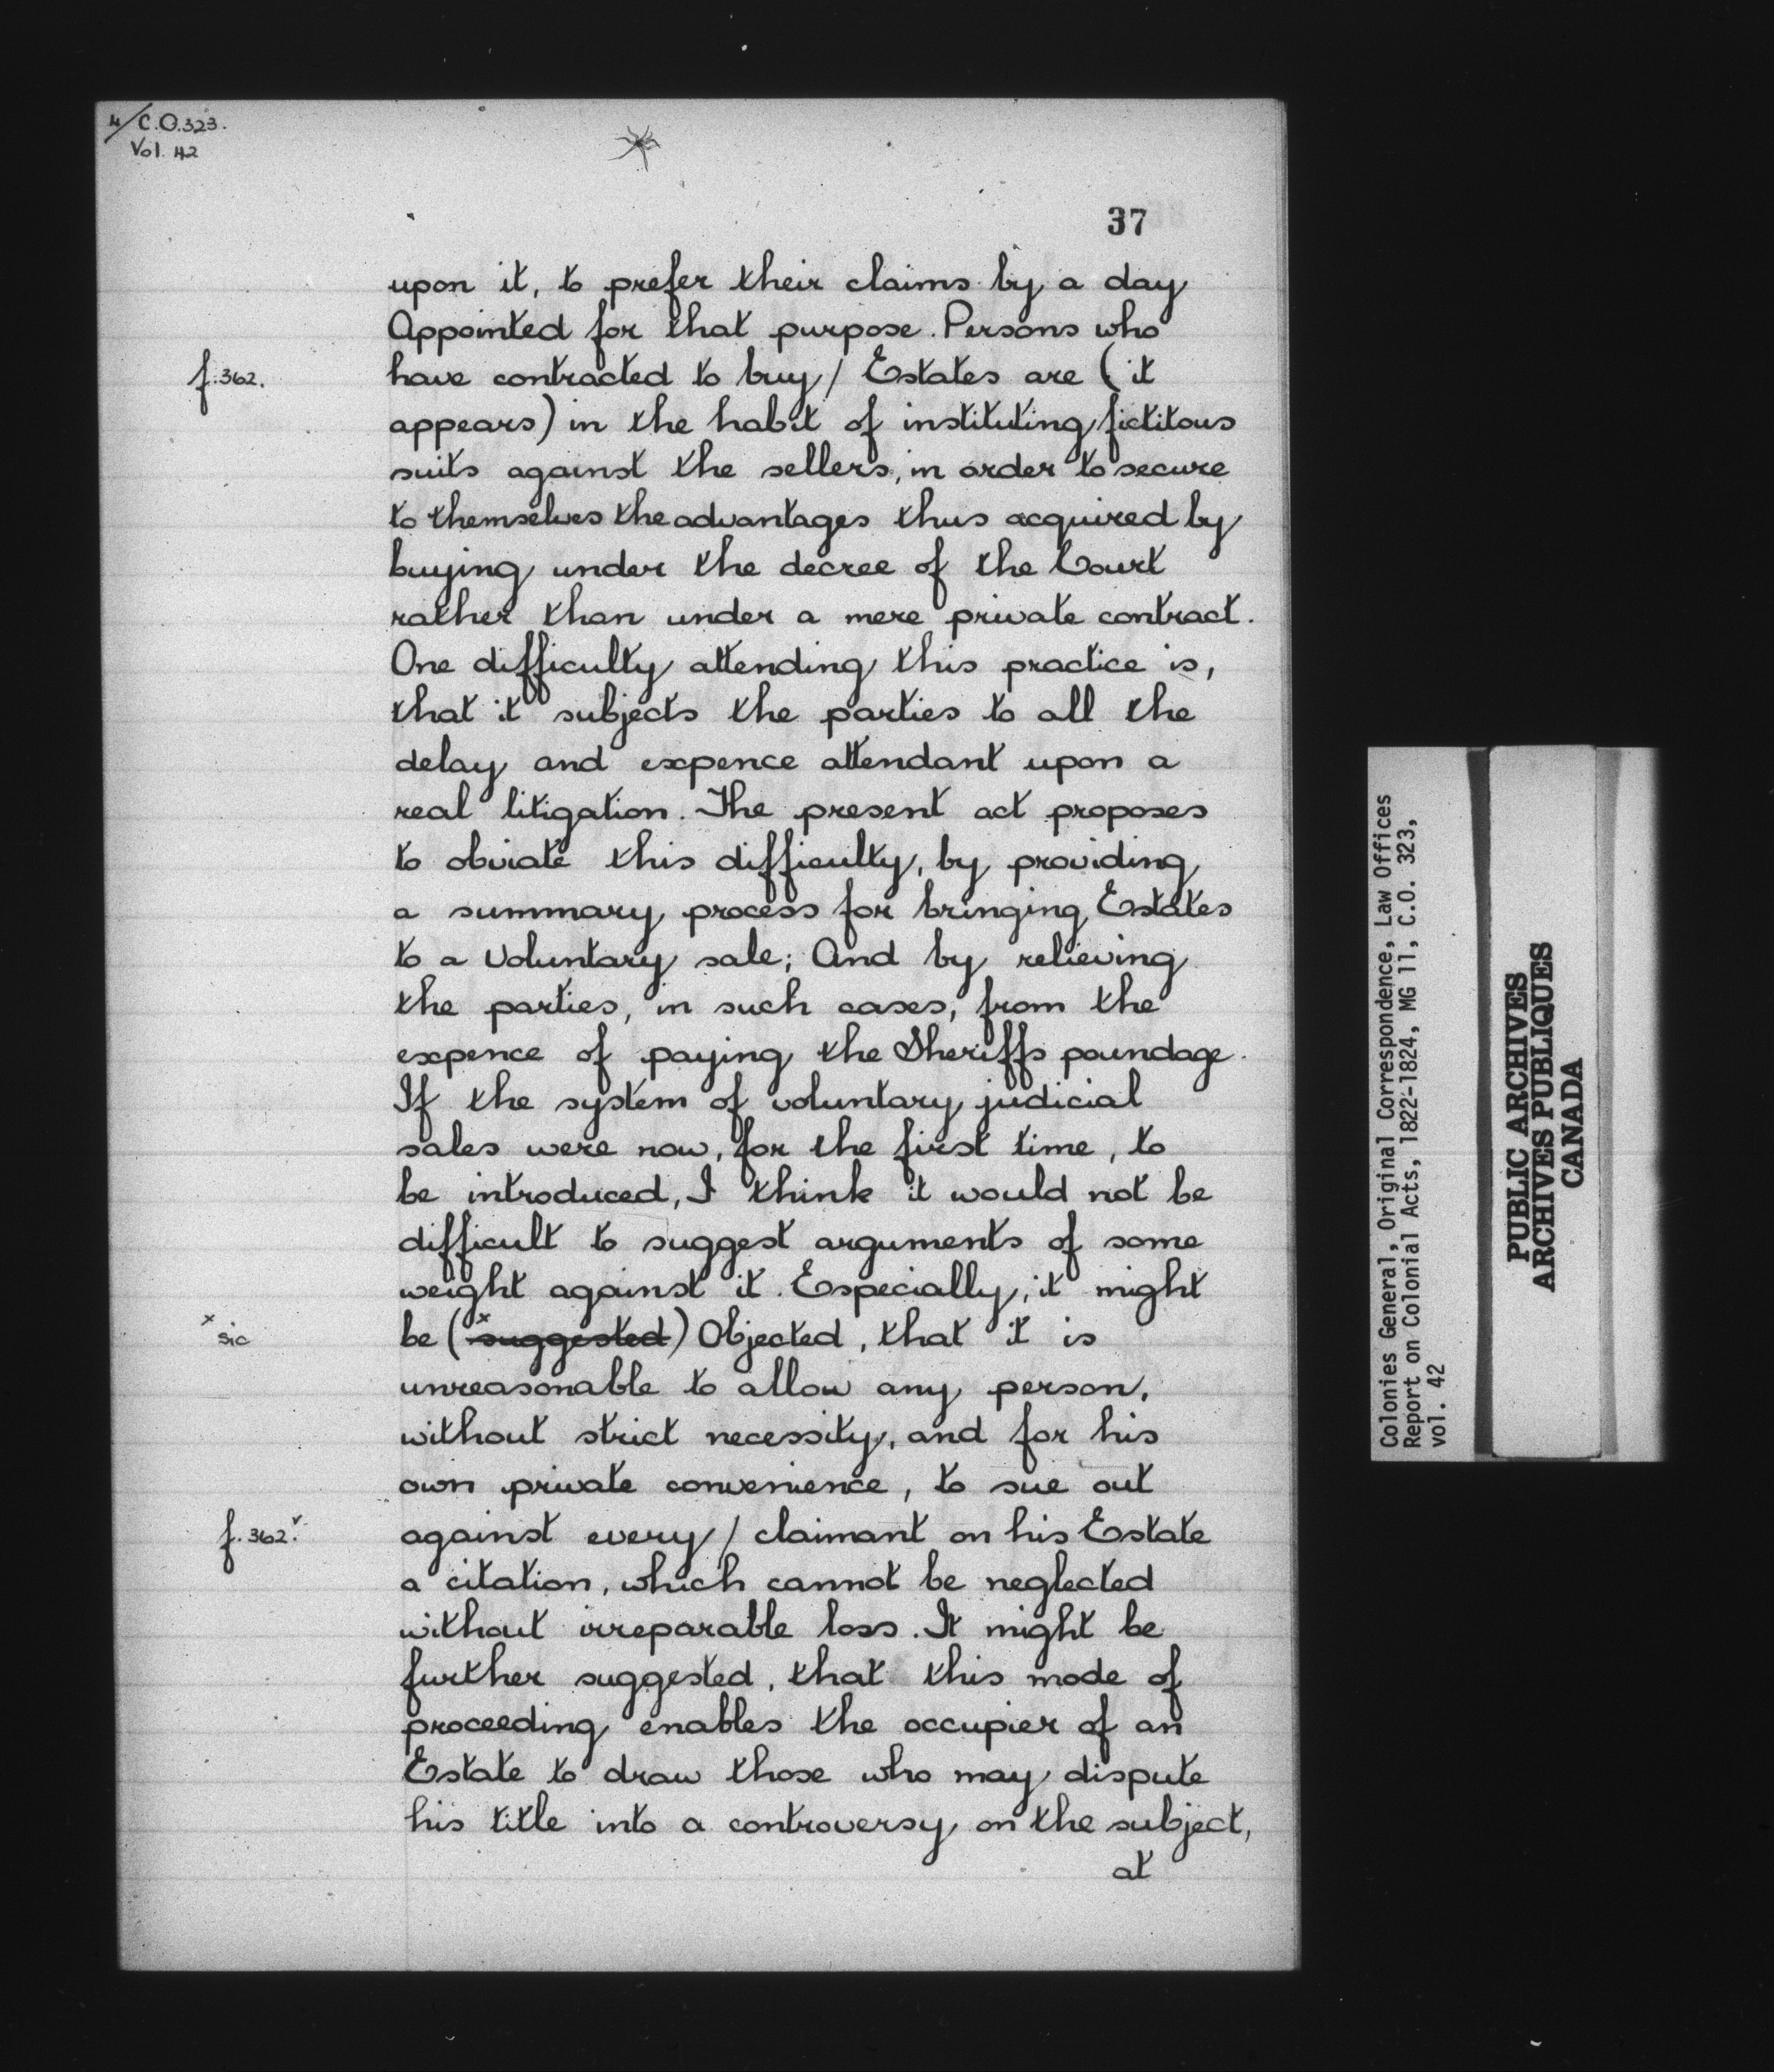 4/C.O.323.
Vol. 42
37
upon it, to prefer their claims by a day
Appointed for that purpose. Persons who
f.362.
have contracted to buy/ Estates are (it
appears) in the habit of instituting fictitous
suits against the sellers, in order to secure
to themselves the advantages thus acquired by
buying under the decree of the Court
rather than under a mere private contract.
One difficulty attending this practice is,
that it subjects the parties to all the
delay and expence attendant upon a
real litigation. The present act proposes
to obviate this difficulty, by providing
a summary process for bringing Estates
to a Voluntary sale; And by relieving
the parties, in such cases, from the
expence of paying the Sheriffs poundage.
If the system of voluntary judicial
sales were now, for the first time, to
be introduced, I think it would not be
difficult to suggest arguments of some
weight against it. Especially, it might
x sic
be (x suggested) Objected, that it is
unreasonable to allow any person,
without strict necessity, and for his
own private convenience, to sue out
f.362.v
against every/ claimant on his Estate
a citation, which cannot be neglected
without irreparable loss. It might be
further suggested, that this mode of
proceeding enables the occupier of an
Estate to draw those who may dispute
his title into a controversy on the subject,
at
Colonies General, Original Correspondence, Law Offices
Report on Colonial Acts, 1822-1824, MG 11, C.O. 323,
vol. 42
PUBLIC ARCHIVES
ARCHIVES PUBLIQUES
CANADA